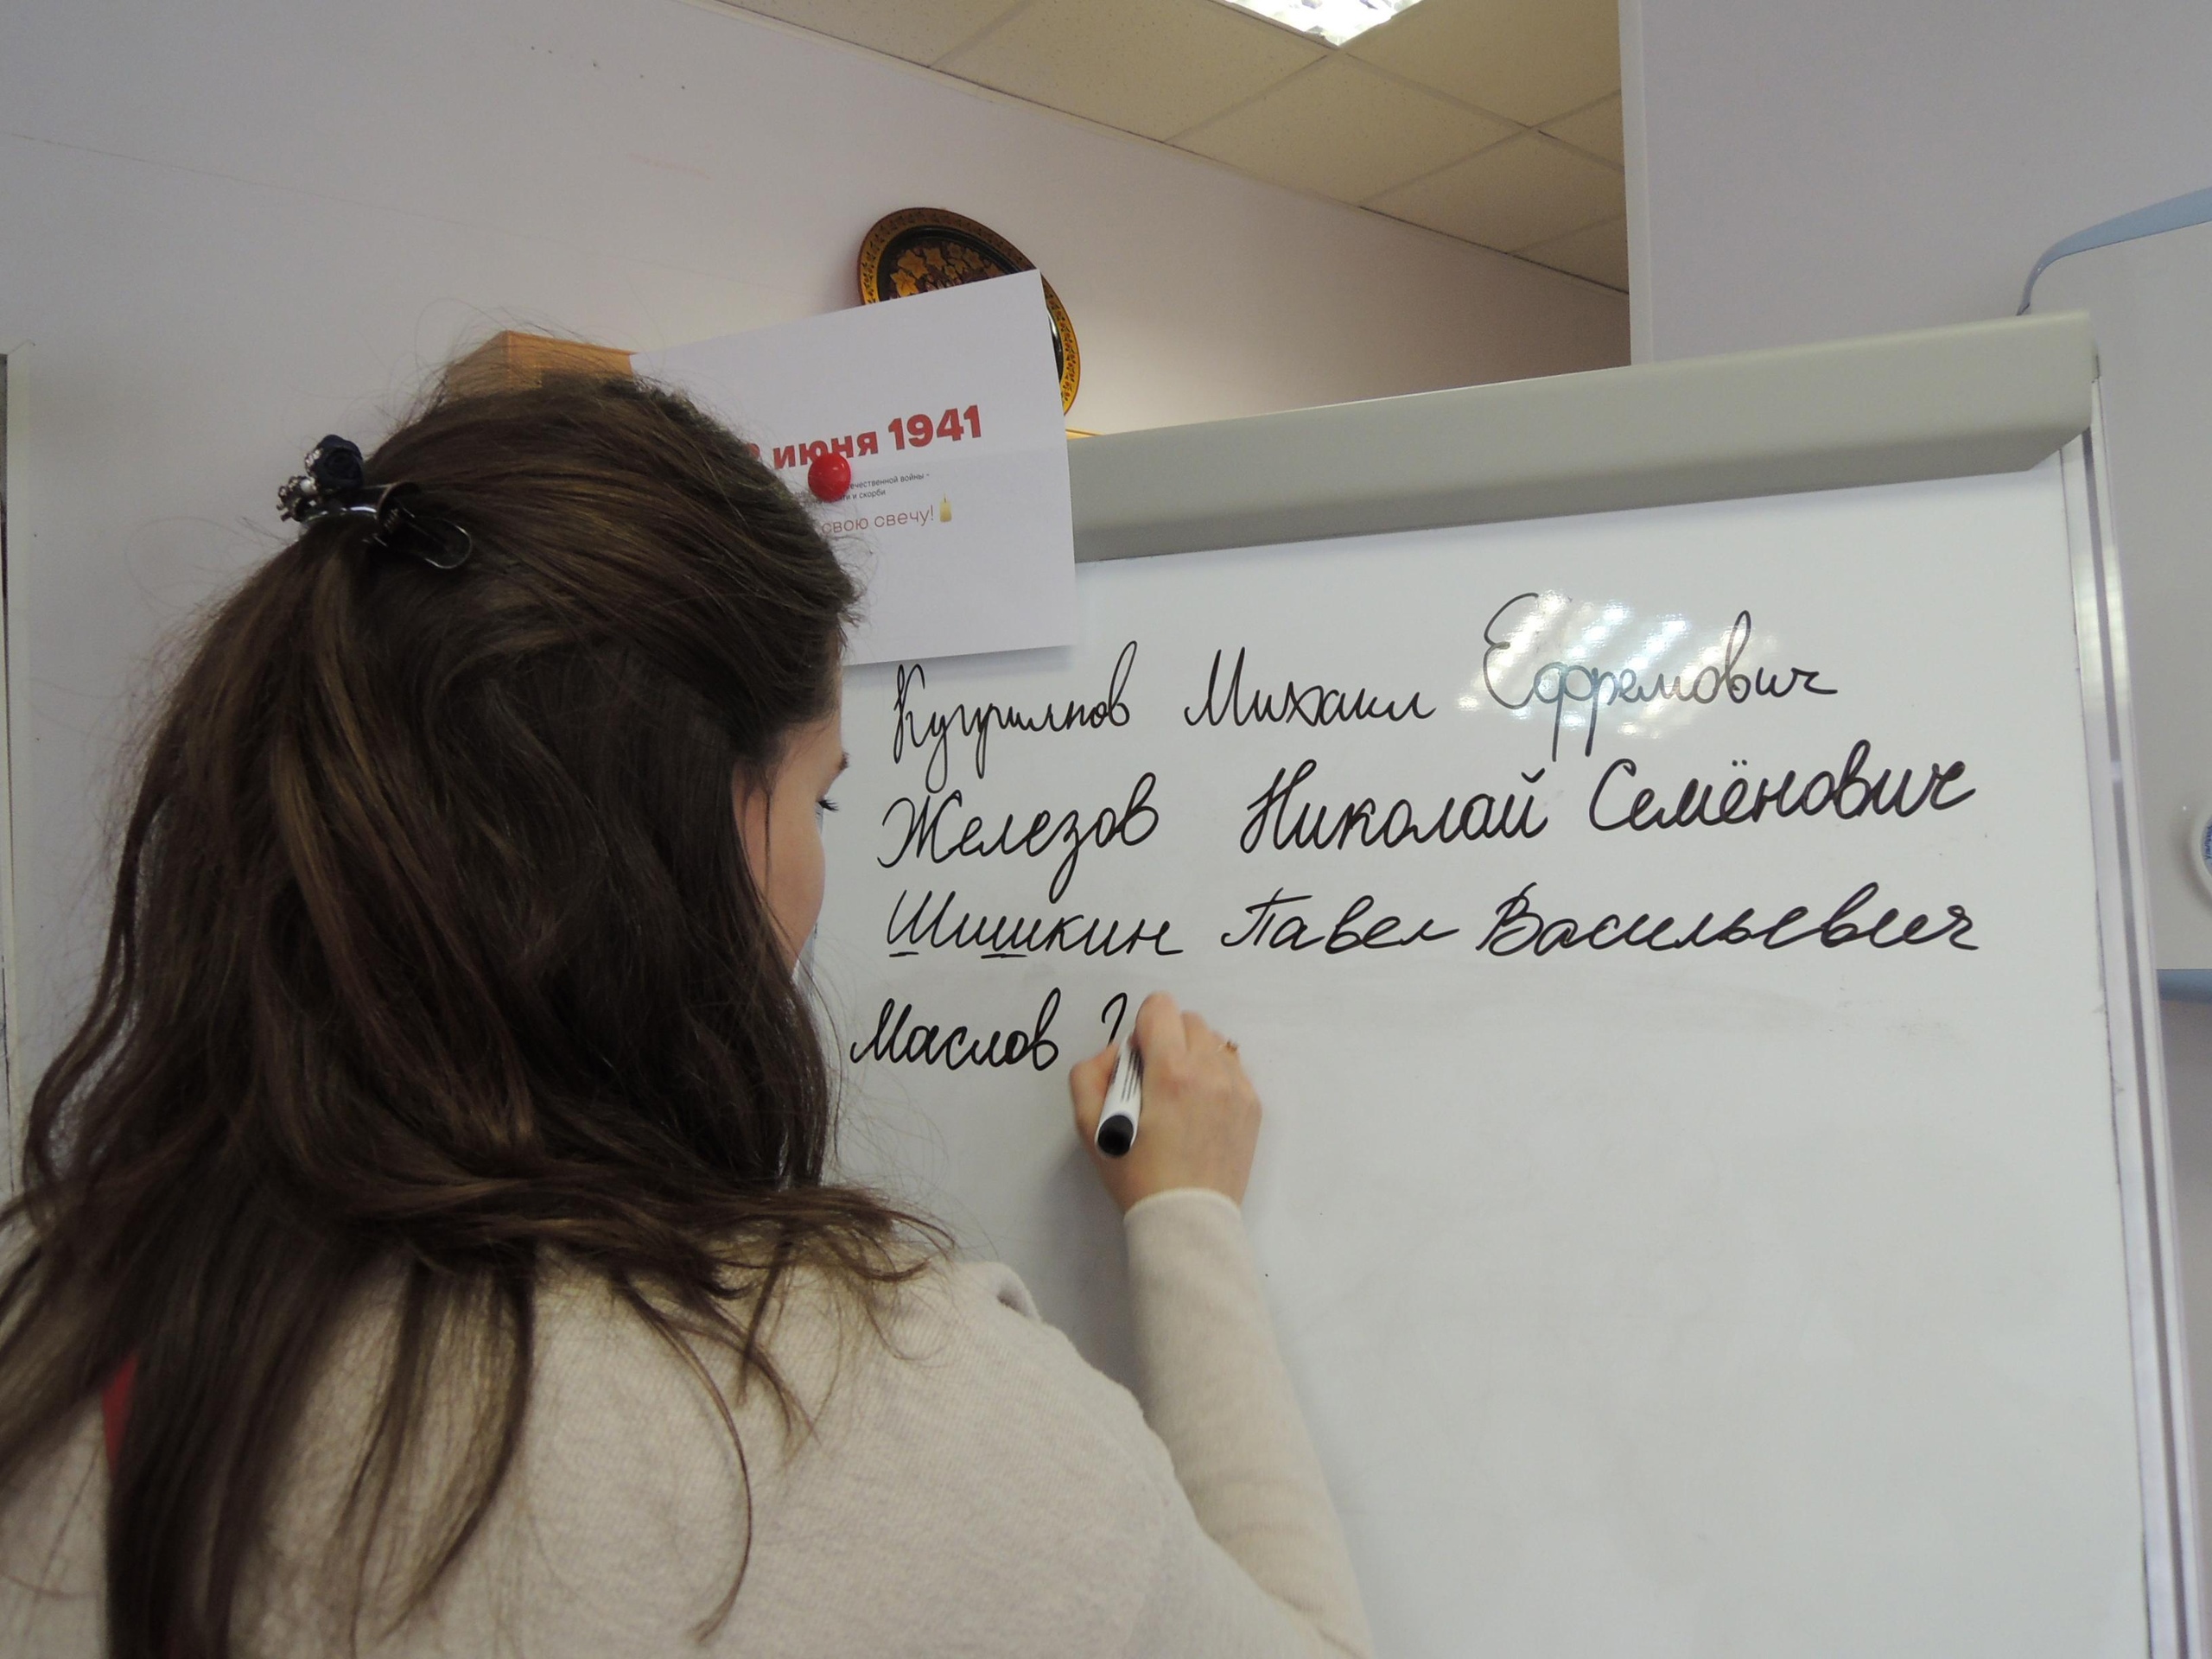 июня 1941
ечественной войны -
и скорби
свою свечу!
Михаил Ефремович
Железов Николай Семёнович
Шишкин Павел Васильевич
Маслов